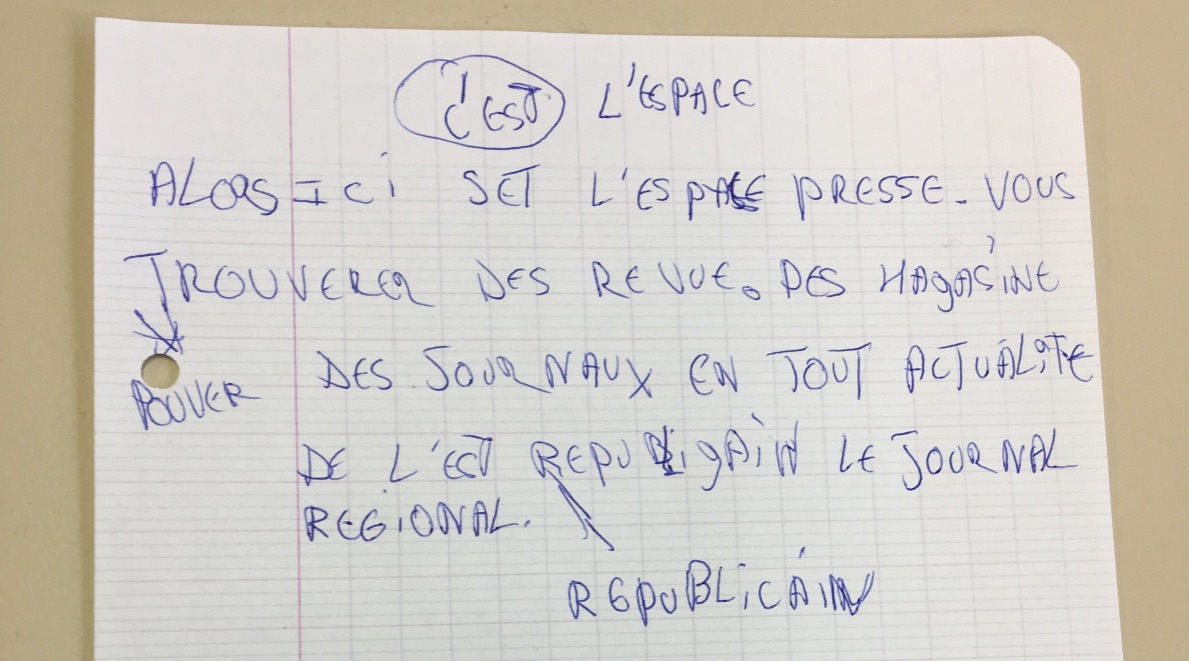 C'EST L'ESPACE
ALORS ICI SET L'ESPACE PRESSE. VOUS
TROUVERER DES REVUE. DES MAGASINE
POUVER
DES JOURNAUX EN TOUT ACTUALITE
DE L'EST REPUBLIGAIN LE JOURNAL
REGIONAL.
REPUBLICAIN